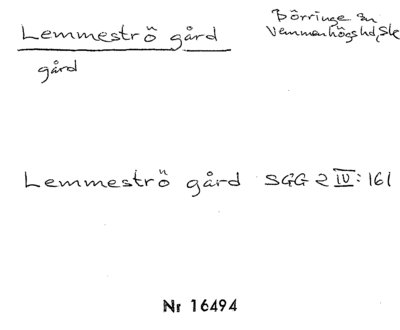 Lemmeströ gård
Börringe sn
Vemmenhögshd, Sk
gård
Lemmeströ gård SGG 2 IV: 161
Nr 16494